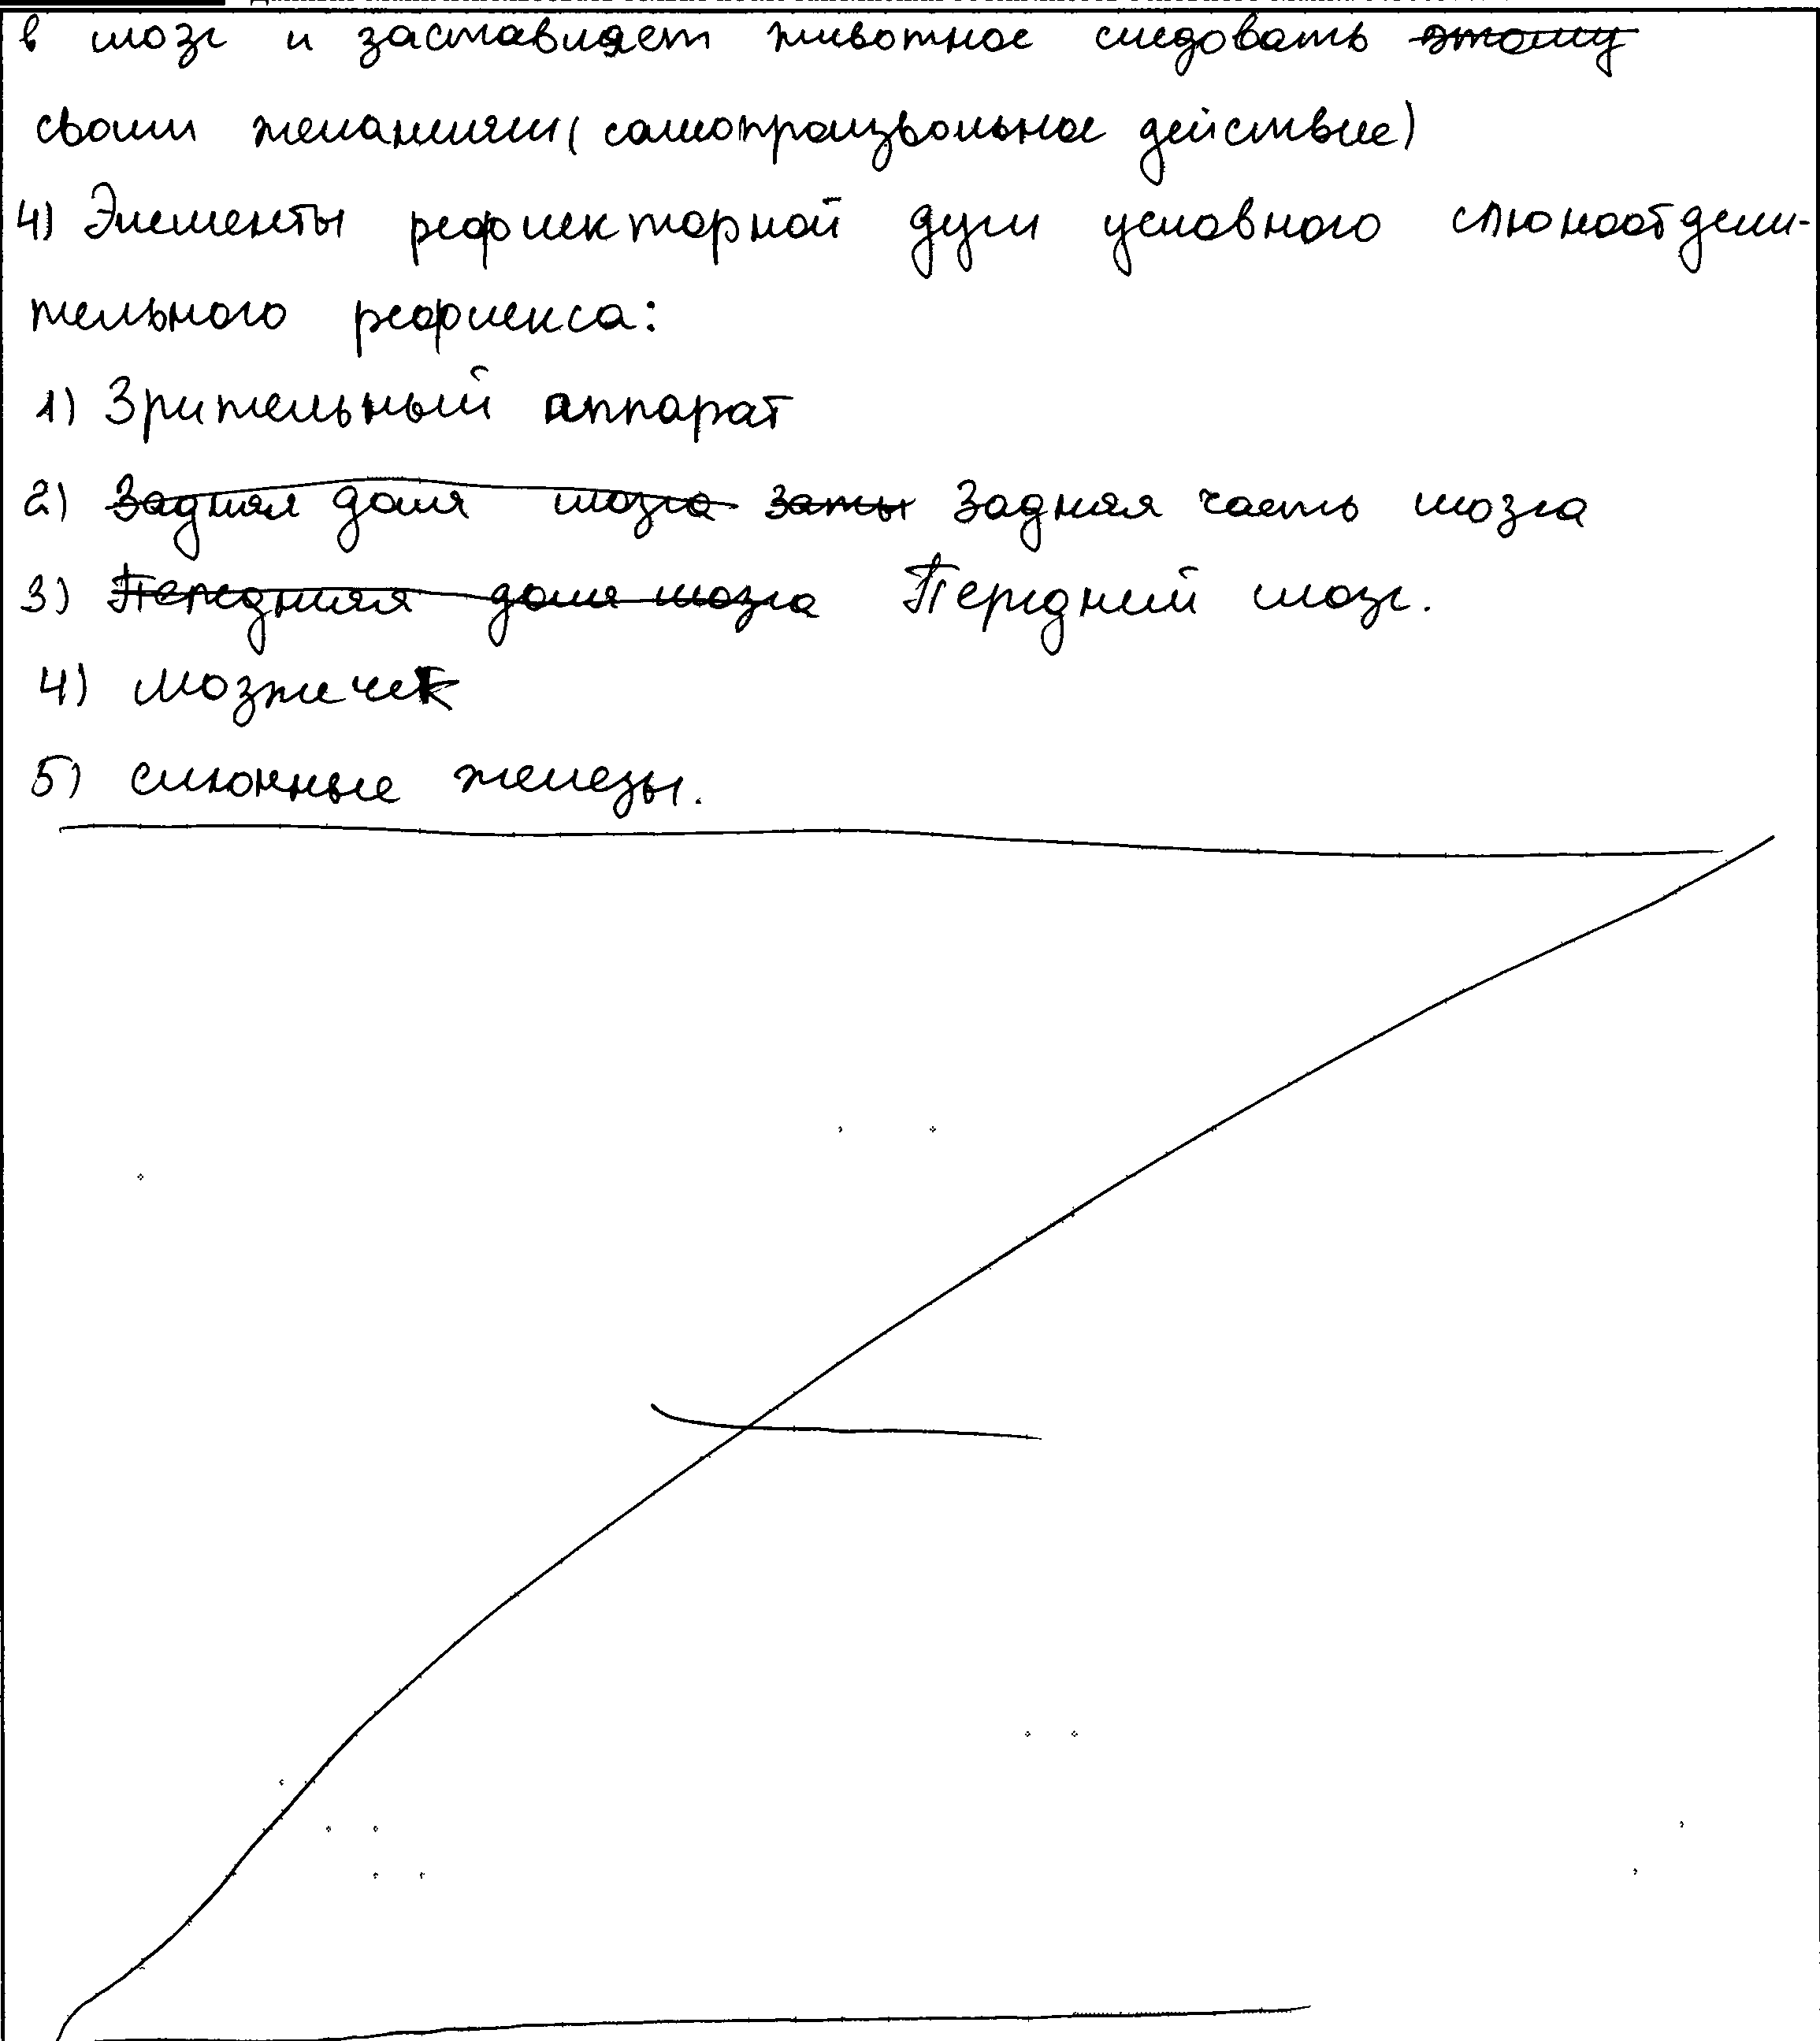 в мозг и заставляет животное следовать этому
своим желаниям (самопроизвольное действие)
4) Элементы рефлекторной дуги условного слюноотдели-
тельного рефлекса:
1) Зрительный аппарат
2) Задняя доля мозга заты Задняя часть мозга
3) Передняя доля мозга Передний мозг.
4) мозжечек
5) слюнные железы.